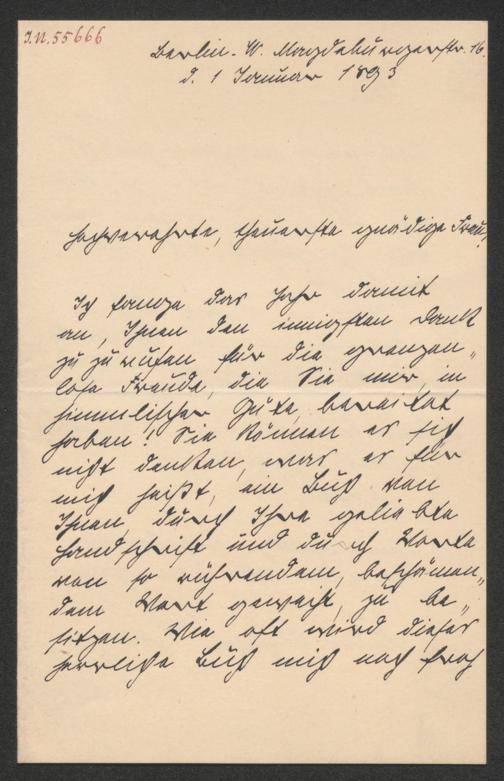 I.N. 55666
Berlin. W. Magdeburgerstr. 16.
d. 1 Januar 1893
Hochverehrte, theuerste gnädige Frau,
Ich fange das Jahr damit
an, Ihnen den innigsten Dank
zu zu rufen für die grenzen„
lose Freude, die Sie mir in
himmlischer Güte bereitet
haben! Sie können es sich
nicht denken, was es für
mich heißt, ein Buch von
Ihnen, durch Ihre geliebte
Handschrift und durch Worte
von so rührendem, beschämen„
dem Wert geweiht, zu be„
sitzen. Wie oft wird dieses
herrliche Buch mich noch froh